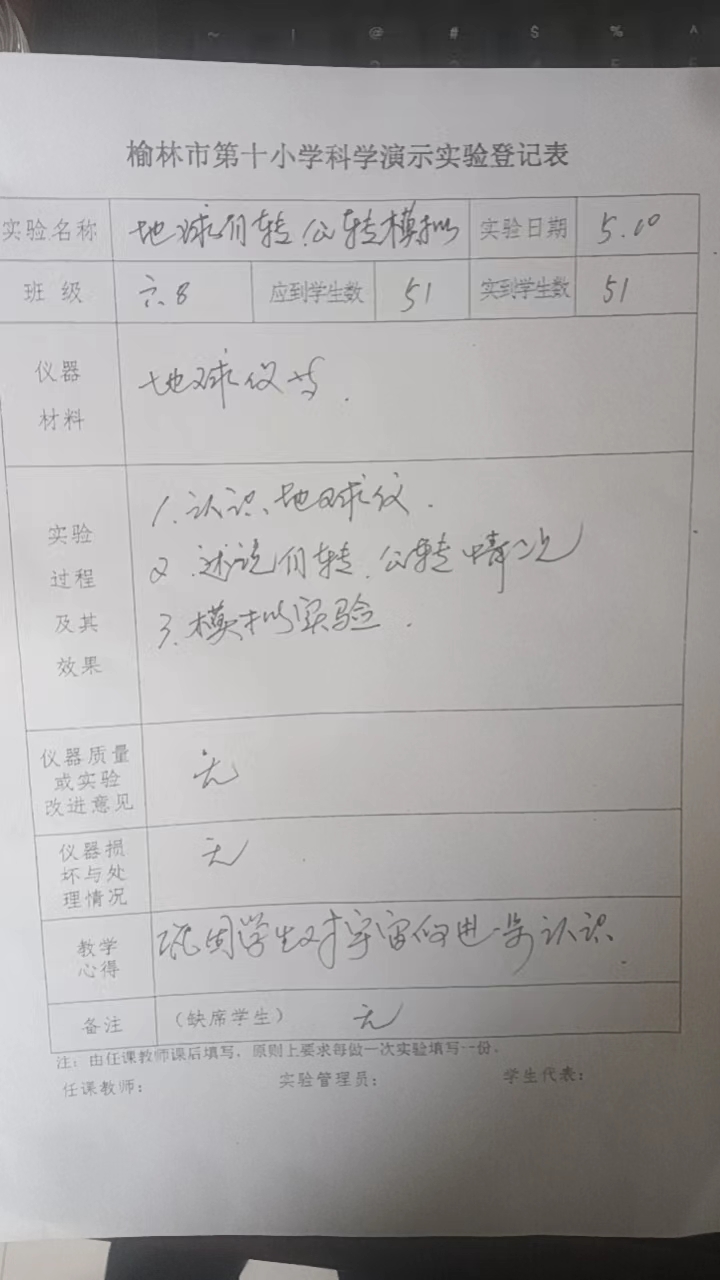 ~ | @ # $ % ^
榆林市第十小学科学演示实验登记表
实验名称 地球自转公转模拟 实验日期 5.10
班级 六.8 应到学生数 51 实到学生数 51
仪器
材料
地球仪等.
实验
过程
及其
效果
1.认识地球仪.
2.述说自转.公转情况
3.模拟实验.
仪器质量
或实验
改进意见
无
仪器损
坏与处
理情况
无
教学
心得
巩固学生对宇宙 进一步认识.
备注 (缺席学生) 无
注:由任课教师课后填写,原则上要求每做一次实验填写一份。
任课教师: 实验管理员: 学生代表: